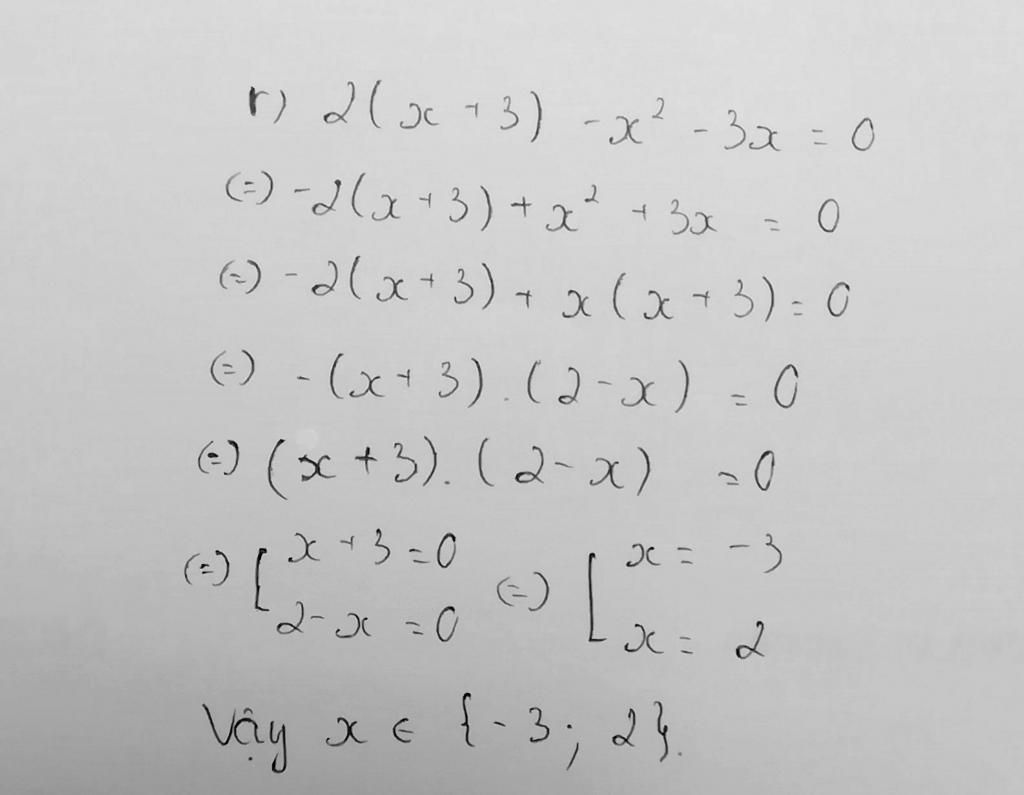 r) 2(x + 3) - x² - 3x = 0
(=) -2(x + 3) + x² + 3x = 0
(=) -2(x + 3) + x(x + 3) = 0
(=) -(x + 3).(2 - x) = 0
(=) (x + 3).(2 - x) = 0
(=) [ x + 3 = 0 (=) [ x = -3
2 - x = 0 x = 2
Vậy x ∈ {-3; 2}.